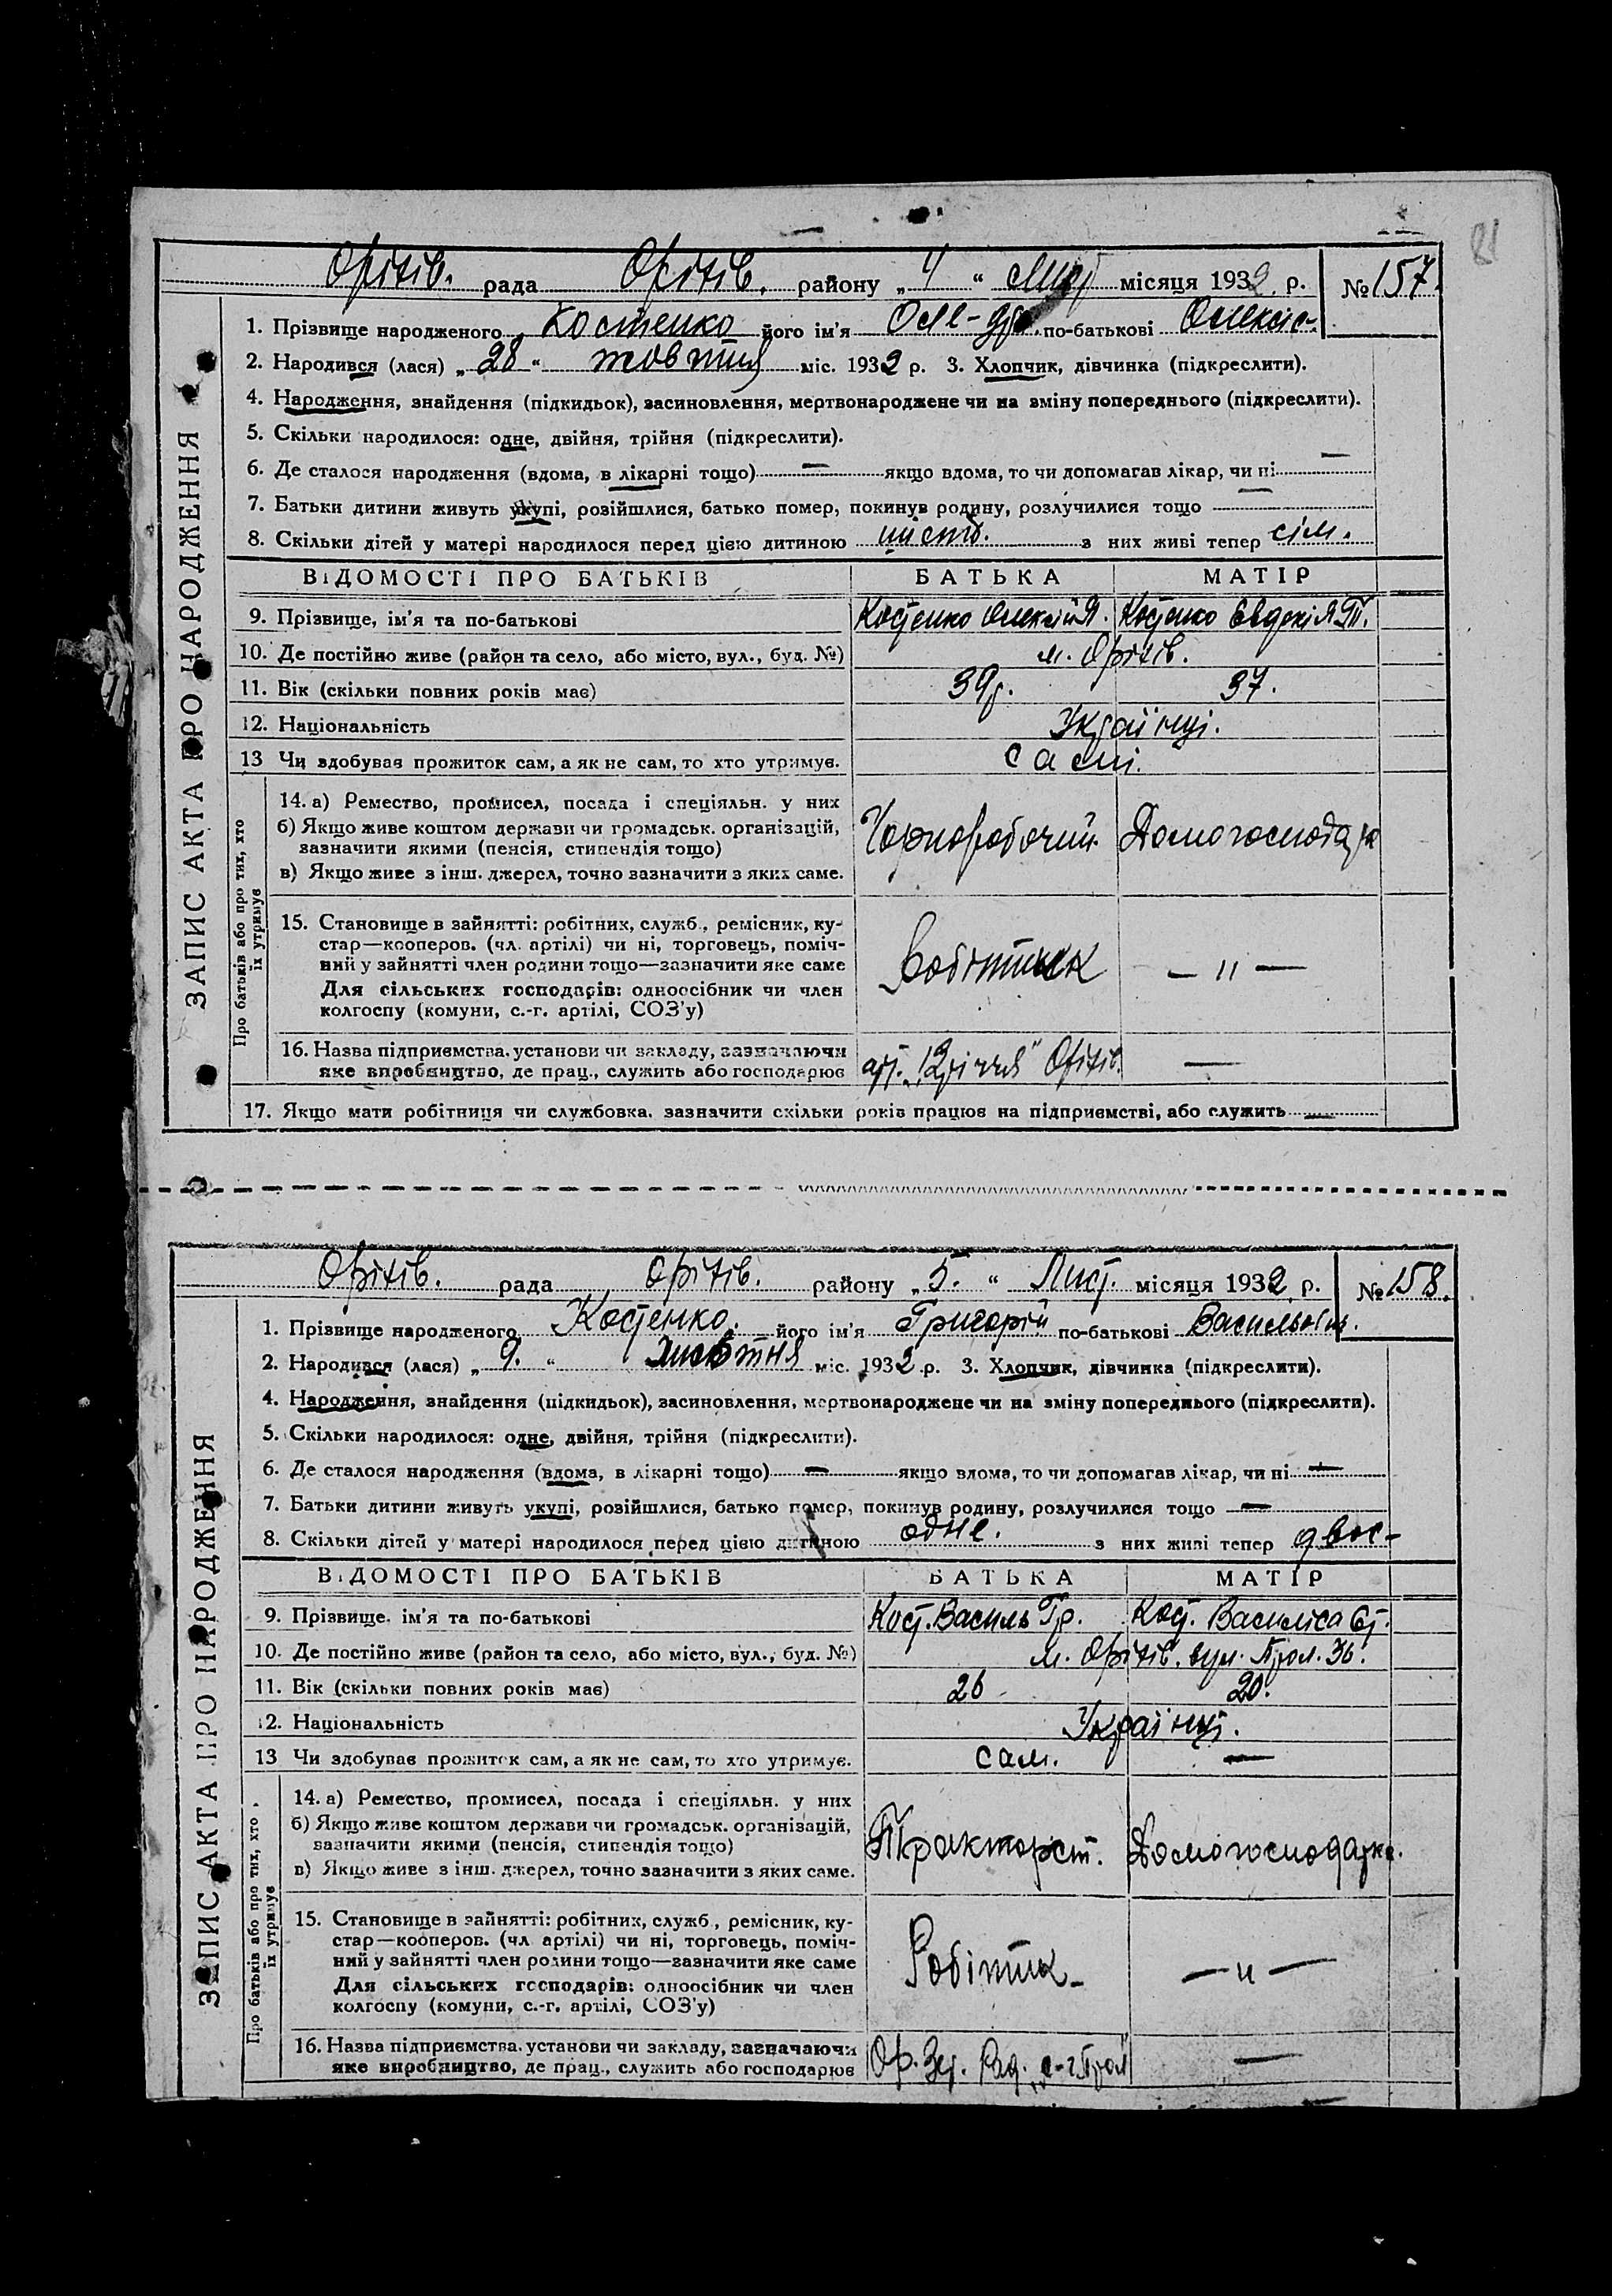 81
Оріхів. рада Оріхів. району „4“ Лист місяця 1932 р. № 157.
1. Прізвище народженого Костенко його ім'я Оле-др. по-батькові Олексіє-
2. Народився (лася) „28“ жовтня міс. 1932 р. 3. Хлопчик, дівчинка (підкреслити).
4. Народження, знайдення (підкидьок), засиновлення, мертвонароджене чи на зміну попереднього (підкреслити).
5. Скільки народилося: одне, двійня, трійня (підкреслити).
6. Де сталося народження (вдома, в лікарні тощо) — якщо вдома, то чи допомагав лікар, чи ні —
7. Батьки дитини живуть укупі, розійшлися, батько помер, покинув родину, розлучилися тощо —
8. Скільки дітей у матері народилося перед цією дитиною шість. з них живі тепер сім.
ЗАПИС АКТА ПРО НАРОДЖЕННЯ
ВІДОМОСТІ ПРО БАТЬКІВ БАТЬКА МАТІР
9. Прізвище, ім'я та по-батькові Костенко Олексій Костенко Евдокія
10. Де постійно живе (район та село, або місто, вул., буд. №) м. Оріхів.
11. Вік (скільки повних років має) 39р. 37.
12. Національність Українці.
13 Чи здобував прожиток сам, а як не сам, то хто утримує. самі.
Про батьків або про тих, хто їх утримує
14. а) Ремество, промисел, посада і спеціяльн. у них
б) Якщо живе коштом держави чи громадськ. організацій,
зазначити якими (пенсія, стипендія тощо) Чорноробочий. Домогосподар
в) Якщо живе з інш. джерел, точно зазначити з яких саме.
15. Становище в зайнятті: робітник, служб., ремісник, ку-
стар—кооперов. (чл. артілі) чи ні, торговець, поміч-
ний у зайнятті член родини тощо—зазначити яке саме Робітник — " —
Для сільських господарів: одноосібник чи член
колгоспу (комуни, с.-г. артілі, СОЗ'у)
16. Назва підприємства, установи чи закладу, зазначаючи
яке виробництво, де прац., служить або господарює арт. „12річчя" Оріхів. —
17. Якщо мати робітниця чи службовка, зазначити скільки років працює на підприємстві, або служить —
Оріхів. рада Оріхів. району „5.“ Лист. місяця 1932 р. № 158.
1. Прізвище народженого Костенко. його ім'я Григорій по-батькові Васильов.
2. Народився (лася) „9.“ міс. 1932 р. 3. Хлопчик, дівчинка (підкреслити).
4. Народження, знайдення (підкидьок), засиновлення, мертвонароджене чи на зміну попереднього (підкреслити).
5. Скільки народилося: одне, двійня, трійня (підкреслити).
6. Де сталося народження (вдома, в лікарні тощо) — якщо вдома, то чи допомагав лікар, чи ні —
7. Батьки дитини живуть укупі, розійшлися, батько помер, покинув родину, розлучилися тощо —
8. Скільки дітей у матері народилося перед цією дитиною одне. з них живі тепер двоє-
ЗАПИС АКТА ПРО НАРОДЖЕННЯ
ВІДОМОСТІ ПРО БАТЬКІВ БАТЬКА МАТІР
9. Прізвище, ім'я та по-батькові Кост. Василь Гр. Кост. Василіса Ст.
10. Де постійно живе (район та село, або місто, вул., буд. №) м. Оріхів. вул. Прол. 36.
11. Вік (скільки повних років має) 26 20.
12. Національність Українці.
13 Чи здобував прожиток сам, а як не сам, то хто утримує. сам. —
Про батьків або про тих, хто їх утримує
14. а) Ремество, промисел, посада і спеціяльн. у них
б) Якщо живе коштом держави чи громадськ. організацій,
зазначити якими (пенсія, стипендія тощо) Тракторист. Домогосподарка.
в) Якщо живе з інш. джерел, точно зазначити з яких саме.
15. Становище в зайнятті: робітник, служб., ремісник, ку-
стар—кооперов. (чл. артілі) чи ні, торговець, поміч-
ний у зайнятті член родини тощо—зазначити яке саме Робітник — " —
Для сільських господарів: одноосібник чи член
колгоспу (комуни, с.-г. артілі, СОЗ'у)
16. Назва підприємства, установи чи закладу, зазначаючи
яке виробництво, де прац., служить або господарює Ор. Рад. —